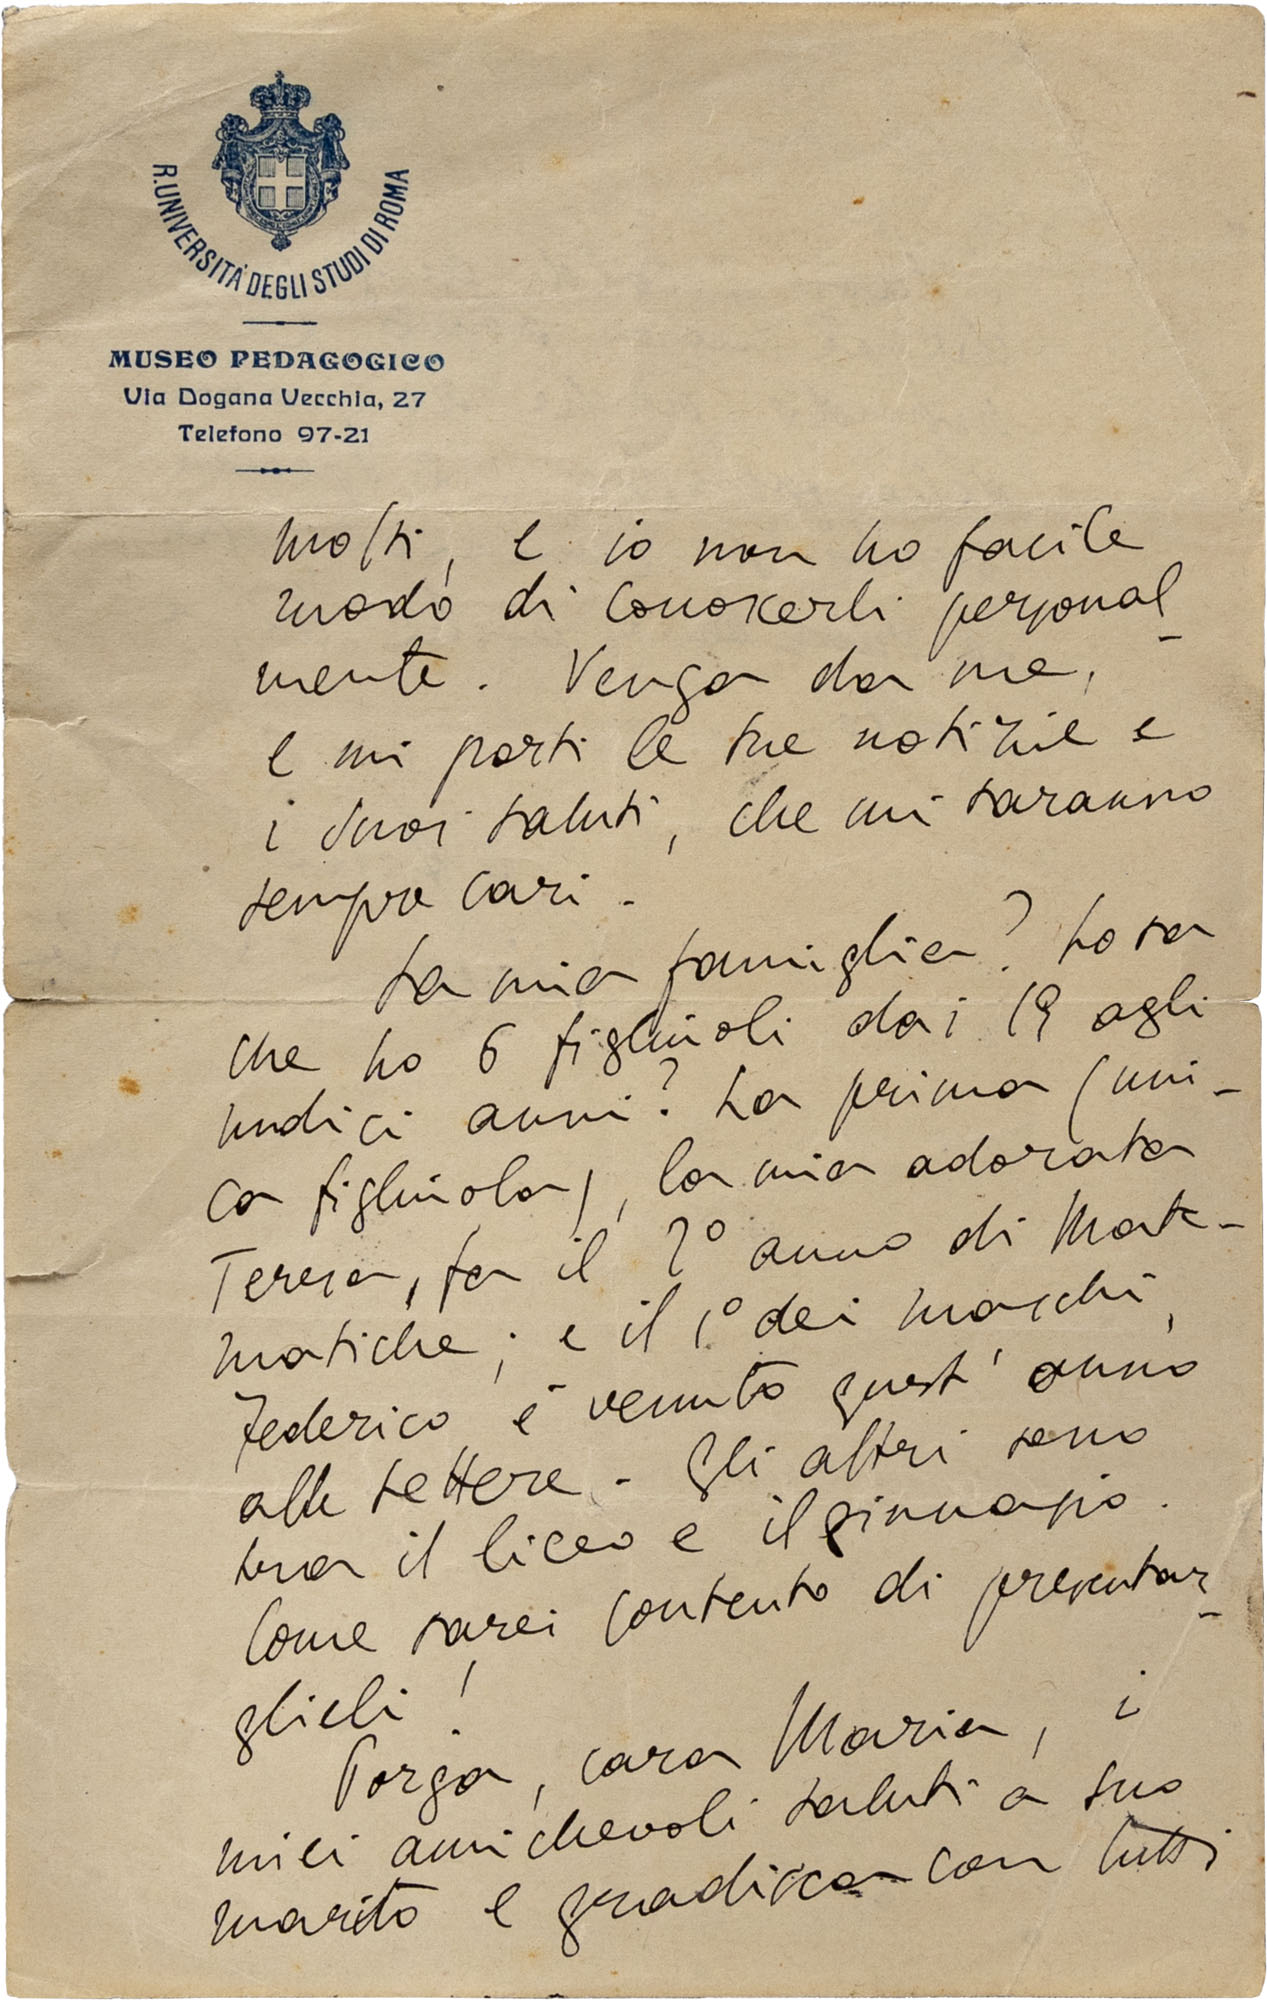 R. UNIVERSITÀ DEGLI STUDI DI ROMA
MUSEO PEDAGOGICO
Via Dogana Vecchia, 27
Telefono 97-21
molti, e io non ho facile
modo di conoscerli personal-
mente. Venga da me,
e mi porti le sue notizie e
i suoi saluti, che mi saranno
sempre cari.
La mia famiglia? Lo sa
che ho 6 figliuoli dai 19 agli
undici anni? La prima (uni-
ca figliuola), la mia adorata
Teresa, fa il 2º anno di Mate-
matiche; e il 1º dei maschi,
Federico è venuto quest'anno
alle Lettere. Gli altri sono
tra il liceo e il ginnasio.
Come sarei contento di presentar-
glieli!
Porga, cara Maria, i
miei amichevoli saluti a suo
marito e gradisca con tutti